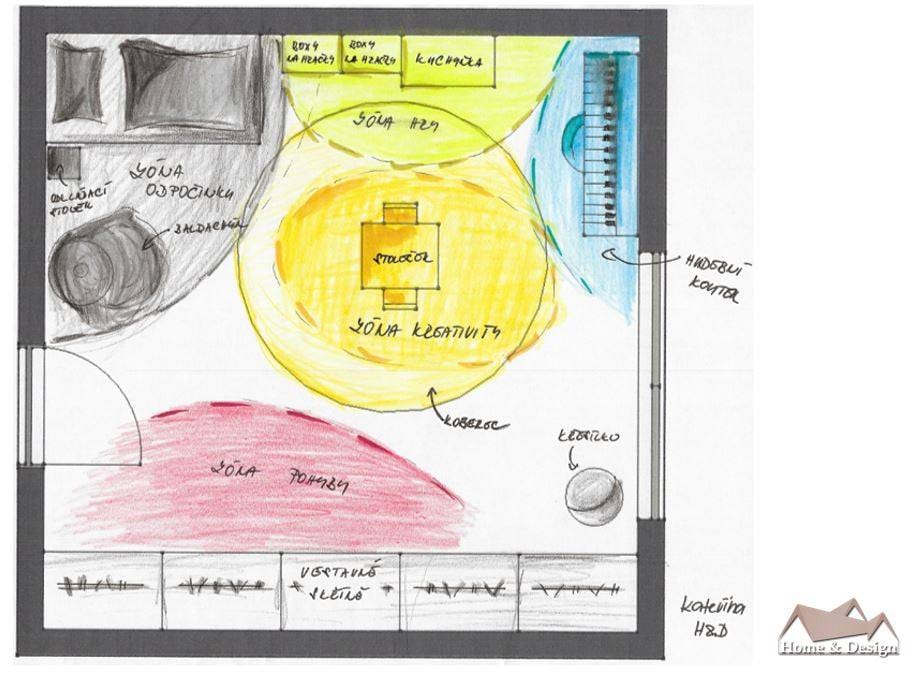 BOXY
NA HRAČKY
BOXY
NA HRAČKY
KUCHYŇKA
ZÓNA HRY
ZÓNA
ODPOČINKU
ODKLÁDACÍ
STOLEK
BALDACHÝN
STOLEČEK
HUDEBNÍ
KOUTEK
ZÓNA KREATIVITY
KOBEREC
KŘESÍLKO
ZÓNA POHYBU
VESTAVNÉ
SKŘÍNĚ
Kateřina
H&D
Home & Design